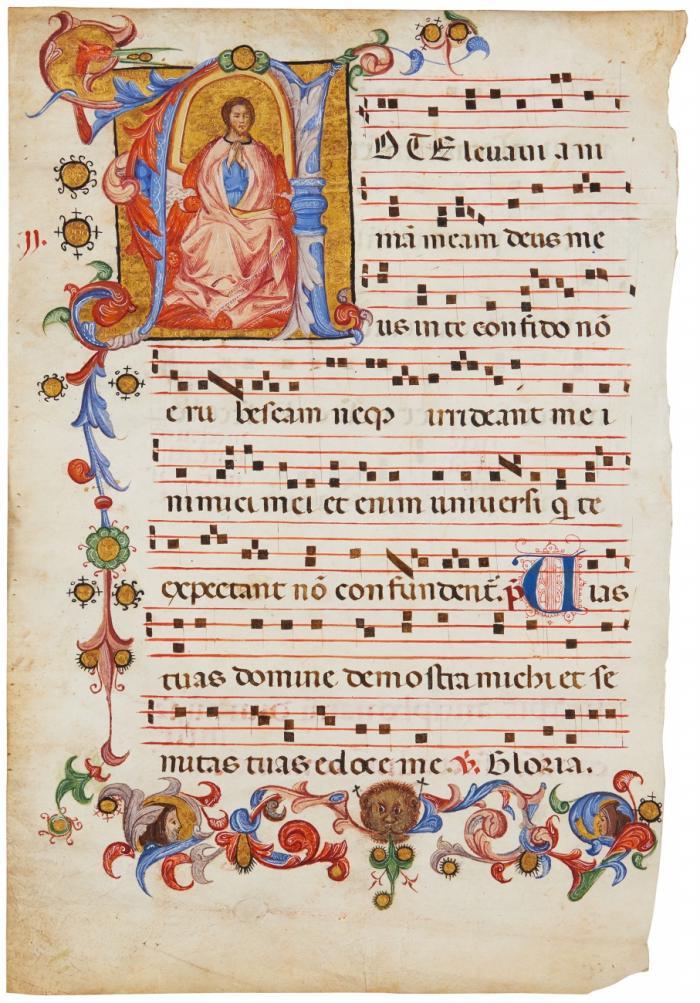 AD TE levavi ani
mā meam deus me
us in te confido nō
eru bescam neq₃ irrideant me i
nimici mei et enim universi q̄ te
expectant nō confundent̄. p̄ Vias
tuas domine demostra michi et se
mitas tuas edoce me ℣. Gloria.